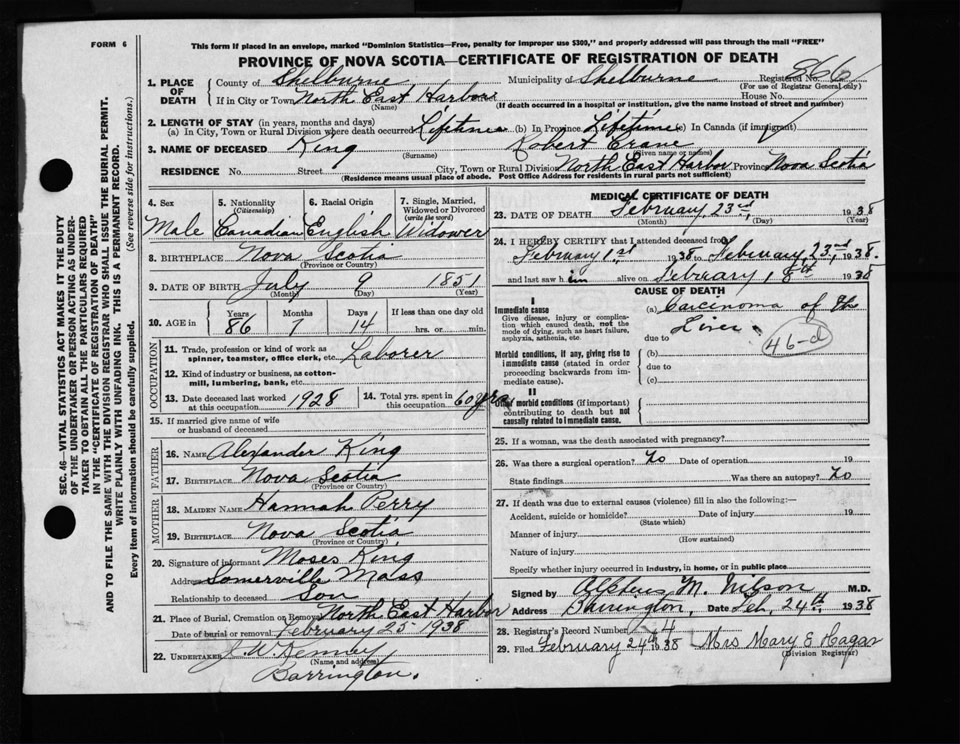 FORM 6
This form if placed in an envelope, marked "Dominion Statistics—Free, penalty for improper use $300," and properly addressed will pass through the mail "FREE"
PROVINCE OF NOVA SCOTIA—CERTIFICATE OF REGISTRATION OF DEATH
1. PLACE OF DEATH
County of Shelburne Municipality of Shelburne Registered No. 866
(For use of Registrar General only)
If in City or Town North East Harbor House No.
(Name) (If death occurred in a hospital or institution, give the name instead of street and number)
2. LENGTH OF STAY (in years, months and days)
(a) In City, Town or Rural Division where death occurred Lifetime (b) In Province Lifetime (c) In Canada (if immigrant)
3. NAME OF DECEASED King Robert Crane
(Surname) (Given name or names)
RESIDENCE No. Street City, Town or Rural Division North East Harbor Province Nova Scotia
(Residence means usual place of abode. Post Office Address for residents in rural parts not sufficient)
4. Sex
Male
5. Nationality (Citizenship)
Canadian
6. Racial Origin
English
7. Single, Married, Widowed or Divorced (write the word)
Widower
8. BIRTHPLACE Nova Scotia
(Province or Country)
9. DATE OF BIRTH July 9 1851
(Month) (Day) (Year)
10. AGE in Years Months Days If less than one day old
86 7 14 hrs. or min.
OCCUPATION
11. Trade, profession or kind of work as spinner, teamster, office clerk, etc. Laborer
12. Kind of industry or business, as cotton-mill, lumbering, bank, etc.
13. Date deceased last worked at this occupation 1928
14. Total yrs. spent in this occupation 60 yrs
15. If married give name of wife or husband of deceased
FATHER
16. NAME Alexander King
17. BIRTHPLACE Nova Scotia
(Province or Country)
MOTHER
18. MAIDEN NAME Hannah Perry
19. BIRTHPLACE Nova Scotia
(Province or Country)
20. Signature of informant Moses King
Address Somerville Mass
Relationship to deceased Son
21. Place of Burial, Cremation or Removal North East Harbor
Date of burial or removal February 25 1938
22. UNDERTAKER J. W. Kenney
(Name and address)
Barrington.
MEDICAL CERTIFICATE OF DEATH
23. DATE OF DEATH February 23rd, 1938
(Month) (Day) (Year)
24. I HEREBY CERTIFY that I attended deceased from
February 1st 1938 to February, 23rd, 1938.
and last saw him alive on February 18th 1938
CAUSE OF DEATH
I
Immediate cause
Give disease, injury or complication which caused death, not the mode of dying, such as heart failure, asphyxia, asthenia, etc.
(a) Carcinoma of the Liver.
due to
46-d
Morbid conditions, if any, giving rise to immediate cause (stated in order proceeding backwards from immediate cause).
(b)
due to
(c)
II
Other morbid conditions (if important) contributing to death but not causally related to immediate cause.
25. If a woman, was the death associated with pregnancy?
26. Was there a surgical operation? No Date of operation 19
State findings Was there an autopsy? No
27. If death was due to external causes (violence) fill in also the following:—
Accident, suicide or homicide? Date of injury 19
(State which)
Manner of injury
(How sustained)
Nature of injury
Specify whether injury occurred in industry, in home, or in public place
Signed by M. Wilson M.D.
Address Barrington, Date Feb, 24th, 1938
28. Registrar's Record Number 4
29. Filed February 24th 1938 Mrs Mary E Hagar
(Division Registrar)
SEC. 46—VITAL STATISTICS ACT MAKES IT THE DUTY
OF THE UNDERTAKER OR PERSON ACTING AS UNDER-
TAKER TO OBTAIN ALL THE PARTICULARS REQUIRED
IN THE "CERTIFICATE OF REGISTRATION OF DEATH"
AND TO FILE THE SAME WITH THE DIVISION REGISTRAR WHO SHALL ISSUE THE BURIAL PERMIT.
WRITE PLAINLY WITH UNFADING INK. THIS IS A PERMANENT RECORD.
Every item of information should be carefully supplied. (See reverse side for instructions.)